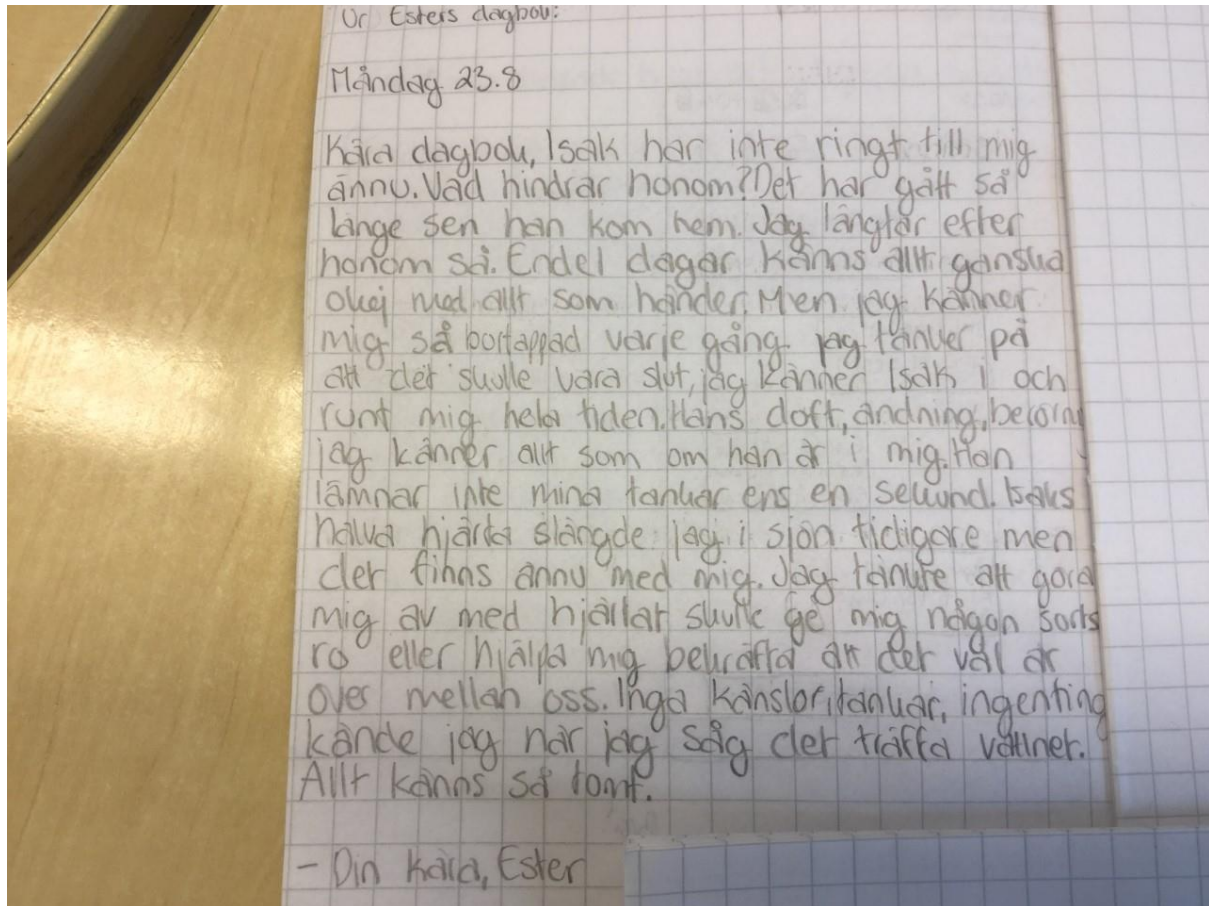 Ur Esters dagbok:
Måndag 23.8
Kära dagbok, Isak har inte ringt till mig
ännu. Vad hindrar honom? Det har gått så
länge sen han kom hem. Jag längtar efter
honom så. Endel dagar känns allt ganska
okej med allt som händer. Men jag känner
mig så bortappad varje gång jag tänker på
att det skulle vara slut, jag känner Isak i och
runt mig hela tiden. Hans doft, andning, beröring
jag känner allt som om han är i mig. Han
lämnar inte mina tankar ens en sekund. Isaks
halva hjärta slängde jag i sjön tidigare men
det finns ännu med mig. Jag tänkte att göra
mig av med hjärtat skulle ge mig någon sorts
ro eller hjälpa mig bekräfta att det väl är
över mellan oss. Inga känslor, tankar, ingenting
kände jag när jag såg det träffa vattnet.
Allt känns så tomt.
- Din Kära, Ester